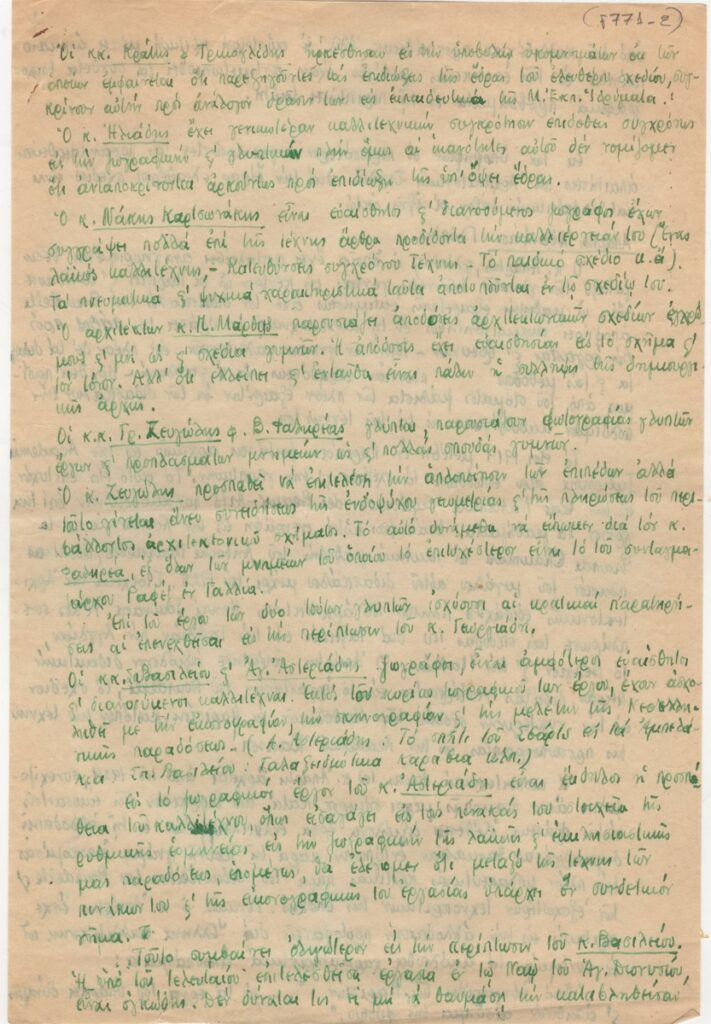 (τ771-2)
Οἱ κκ. Κράτης & Τριανδίδης ἠρκέσθησαν εἰς τὴν ὑποβολὴν ὑπομνημάτων ἐκ τῶν
ὁποίων ἐμφαίνεται ὅτι παρεξηγοῦντες τὰς ἐπιδιώξεις τῆς ἕδρας τοῦ ἐλευθέρου σχεδίου, συγ-
κρίνουν αὐτὴν πρὸς ἀνάλογον δρᾶσιν των εἰς ἐκπαιδευτικὰ τῆς Μ. Ἐκπ. Ἱδρύματα.
Ὁ κ. Ἠλιάδης ἔχει γενικωτέραν καλλιτεχνικὴν συγκρότησιν ἐπιδοθεὶς συγχρόνως
εἰς τὴν ζωγραφικὴν ϛ' γλυπτικὴν πλὴν ὅμως αἱ ἱκανότητες αὐτοῦ δὲν νομίζομεν
ὅτι ἀνταποκρίνονται ἀρκούντως πρὸς ἐπιδίωξιν τῆς ὑπ' ὄψει ἕδρας.
Ὁ κ. Νάκης Καρτσωνάκης εἶναι εὐαίσθητος ϛ' διανοούμενος ζωγράφος ἔχων
συγγράψει πολλὰ ἐπὶ τῆς τέχνης ἄρθρα προδίδοντα τὴν καλλιέργειάν του (Ἕνας
λαϊκὸς καλλιτέχνης, - Κατευθύνσεις συγχρόνου Τέχνης - Τὸ παιδικὸ σχέδιο κ.ἄ).
Τὰ πνευματικὰ ϛ' ψυχικὰ χαρακτηριστικὰ ταῦτα ἀποτυποῦνται ἐν τῷ σχεδίῳ του.
Ὁ ἀρχιτέκτων κ. Π. Μάρθας παρουσιάζει ἀποδόσεις ἀρχιτεκτονικῶν σχεδίων ἐγχρώ-
μων ϛ' μή, ὡς ϛ' σχέδια γυμνῶν. Ἡ ἀπόδοσις ἔχει εὐαισθησίας εἰς τὸ σχῆμα ϛ'
τὸν τόνον. Ἀλλ' ὅτι ἐλλείπει ϛ' ἐνταῦθα εἶναι πάλιν ἡ σύλληψις τῆς δημιουργι-
κῆς ἀρχῆς.
Οἱ κ.κ. Γρ. Ζευγώλης & Β. Φαληρέας γλύπται, παρουσιάζουν φωτογραφίας γλυπτῶν
ἔργων ϛ' προπλασμάτων μνημείων ὡς ϛ' πολλὰς σπουδὰς γυμνῶν.
Ὁ κ. Ζευγώλης προσπαθεῖ νὰ ἐπιτελέσῃ τὴν ἁπλοποίησιν τῶν ἐπιπέδων ἀλλὰ
τοῦτο γίνεται ἄνευ συνειδήσεως τῆς ἐνδοψύχου γεωμετρίας ϛ' τῆς πληρώσεως τοῦ περι-
βάλλοντος ἀρχιτεκτονικοῦ σχήματος. Τὸ αὐτὸ δυνάμεθα νὰ εἴπωμεν διὰ τὸν κ.
Φαληρέα, ἐξ ὅλων τῶν μνημείων τοῦ ὁποίου τὸ ἐπιτυχέστερον εἶναι τὸ τοῦ συνταγμα-
τάρχου Ραφὲτ ἐν Γαλλίᾳ.
Ἐπὶ τοῦ ἔργου τῶν δύο τούτων γλυπτῶν ἰσχύουσι αἱ κριτικαὶ παρατηρή-
σεις αἱ ἐπενεχθεῖσαι ἐπὶ τῆς περίπτωσιν τοῦ κ. Γεωργιάδη.
Οἱ κκ. Σπ. Βασιλείου ϛ' Ἀγ. Ἀστεριάδης ζωγράφοι, εἶναι ἀμφότεροι εὐαίσθητοι
ϛ' διανοούμενοι καλλιτέχναι. Ἐκτὸς τοῦ κυρίου ζωγραφικοῦ των ἔργου, ἔχουν ἀσχο-
ληθεῖ μὲ τὴν εἰκονογραφίαν, τὴν σκηνογραφίαν ϛ' τὴν μελέτην τῆς Νεοελλη-
νικῆς παραδόσεως. (Κ. Α. Ἀστεριάδης: Τὸ σπήτι τοῦ Σβάρτς εἰς τὰ Ἀμπελά-
κια Σπ. Βασιλείου: Γαλαξειδιώτικα καράβια κλπ.)
Εἰς τὸ ζωγραφικὸν ἔργον τοῦ κ. Ἀστεριάδη εἶναι ἔκδηλος ἡ προσπά-
θεια τοῦ καλλιτέχνου, ὅπως εἰσαγάγει εἰς τοὺς πίνακάς του στοιχεῖα τῆς
ρυθμικῆς ἑρμηνείας εἰς τὴν ζωγραφικὴν τῆς λαϊκῆς ϛ' ἐκκλησιαστικῆς
μας παραδόσεως, ἑπομένως, θὰ ἐλέγομεν ὅτι μεταξὺ τῆς τέχνης τῶν
πινάκων του ϛ' τῆς εἰκονογραφικῆς του ἐργασίας ὑπάρχει ἓν συνδετικὸν
νῆμα.
Τοῦτο συμβαίνει ὀλιγώτερον εἰς τὴν περίπτωσιν τοῦ κ. Βασιλείου.
Ἡ ὑπὸ τοῦ τελευταίου ἐπιτελεσθεῖσα ἐργασία ἐν τῷ Ναῷ τοῦ Ἁγ. Διονυσίου,
εἶναι ὀγκώδης. Δὲν δύναταί τις, εἰ μὴ νὰ θαυμάσῃ τὴν καταβληθεῖσαν